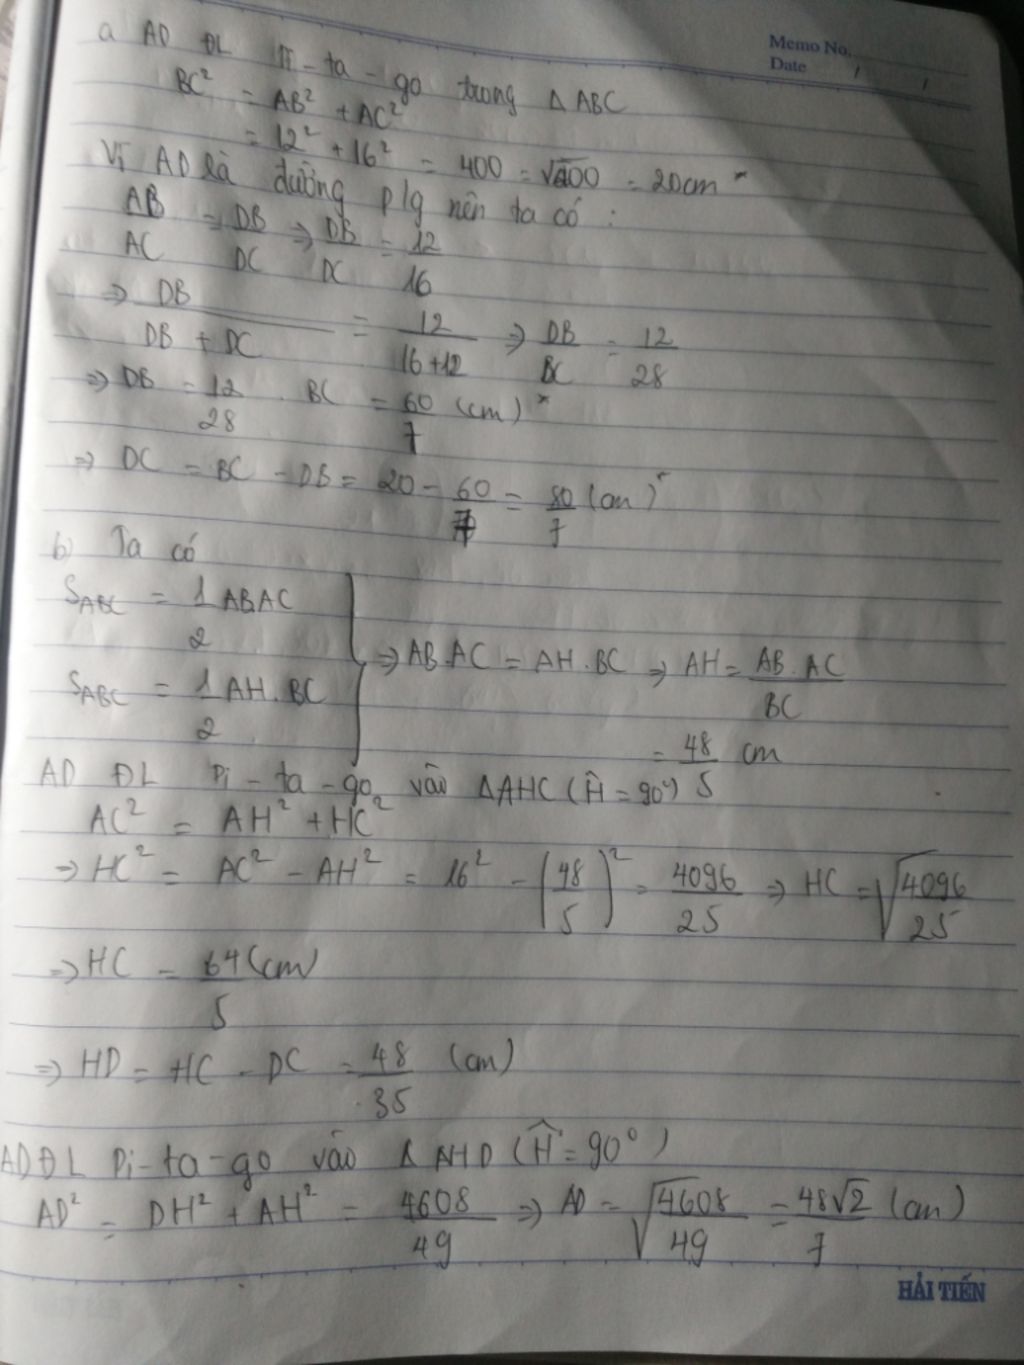 Memo No.
Date / /
a AD ĐL Pi-ta-go trong Δ ABC
BC² = AB² + AC²
= 12² + 16² = 400 = √400 = 20cm
Vì AD là đường p/g nên ta có :
AB/AC = DB/DC ⇒ DB/DC = 12/16
⇒ DB/(DB + DC) = 12/(16+12) ⇒ DB/BC = 12/28
⇒ DB = 12/28 . BC = 60/7 (cm)
⇒ DC = BC - DB = 20 - 60/7 = 80/7 (cm)
b) Ta có
S_ABC = 1/2 ABAC
S_ABC = 1/2 AH.BC
⇒ AB.AC = AH.BC ⇒ AH = AB.AC/BC
= 48/5 cm
AD ĐL Pi-ta-go vào ΔAHC (Ĥ = 90°)
AC² = AH² + HC²
⇒ HC² = AC² - AH² = 16² - (48/5)² = 4096/25 ⇒ HC = √(4096/25)
⇒ HC = 64/5 (cm)
⇒ HD = HC - DC = 48/35 (cm)
ADĐL Pi-ta-go vào Δ AHD (Ĥ = 90°)
AD² = DH² + AH² = 4608/49 ⇒ AD = √(4608/49) = 48√2/7 (cm)
HẢI TIẾN